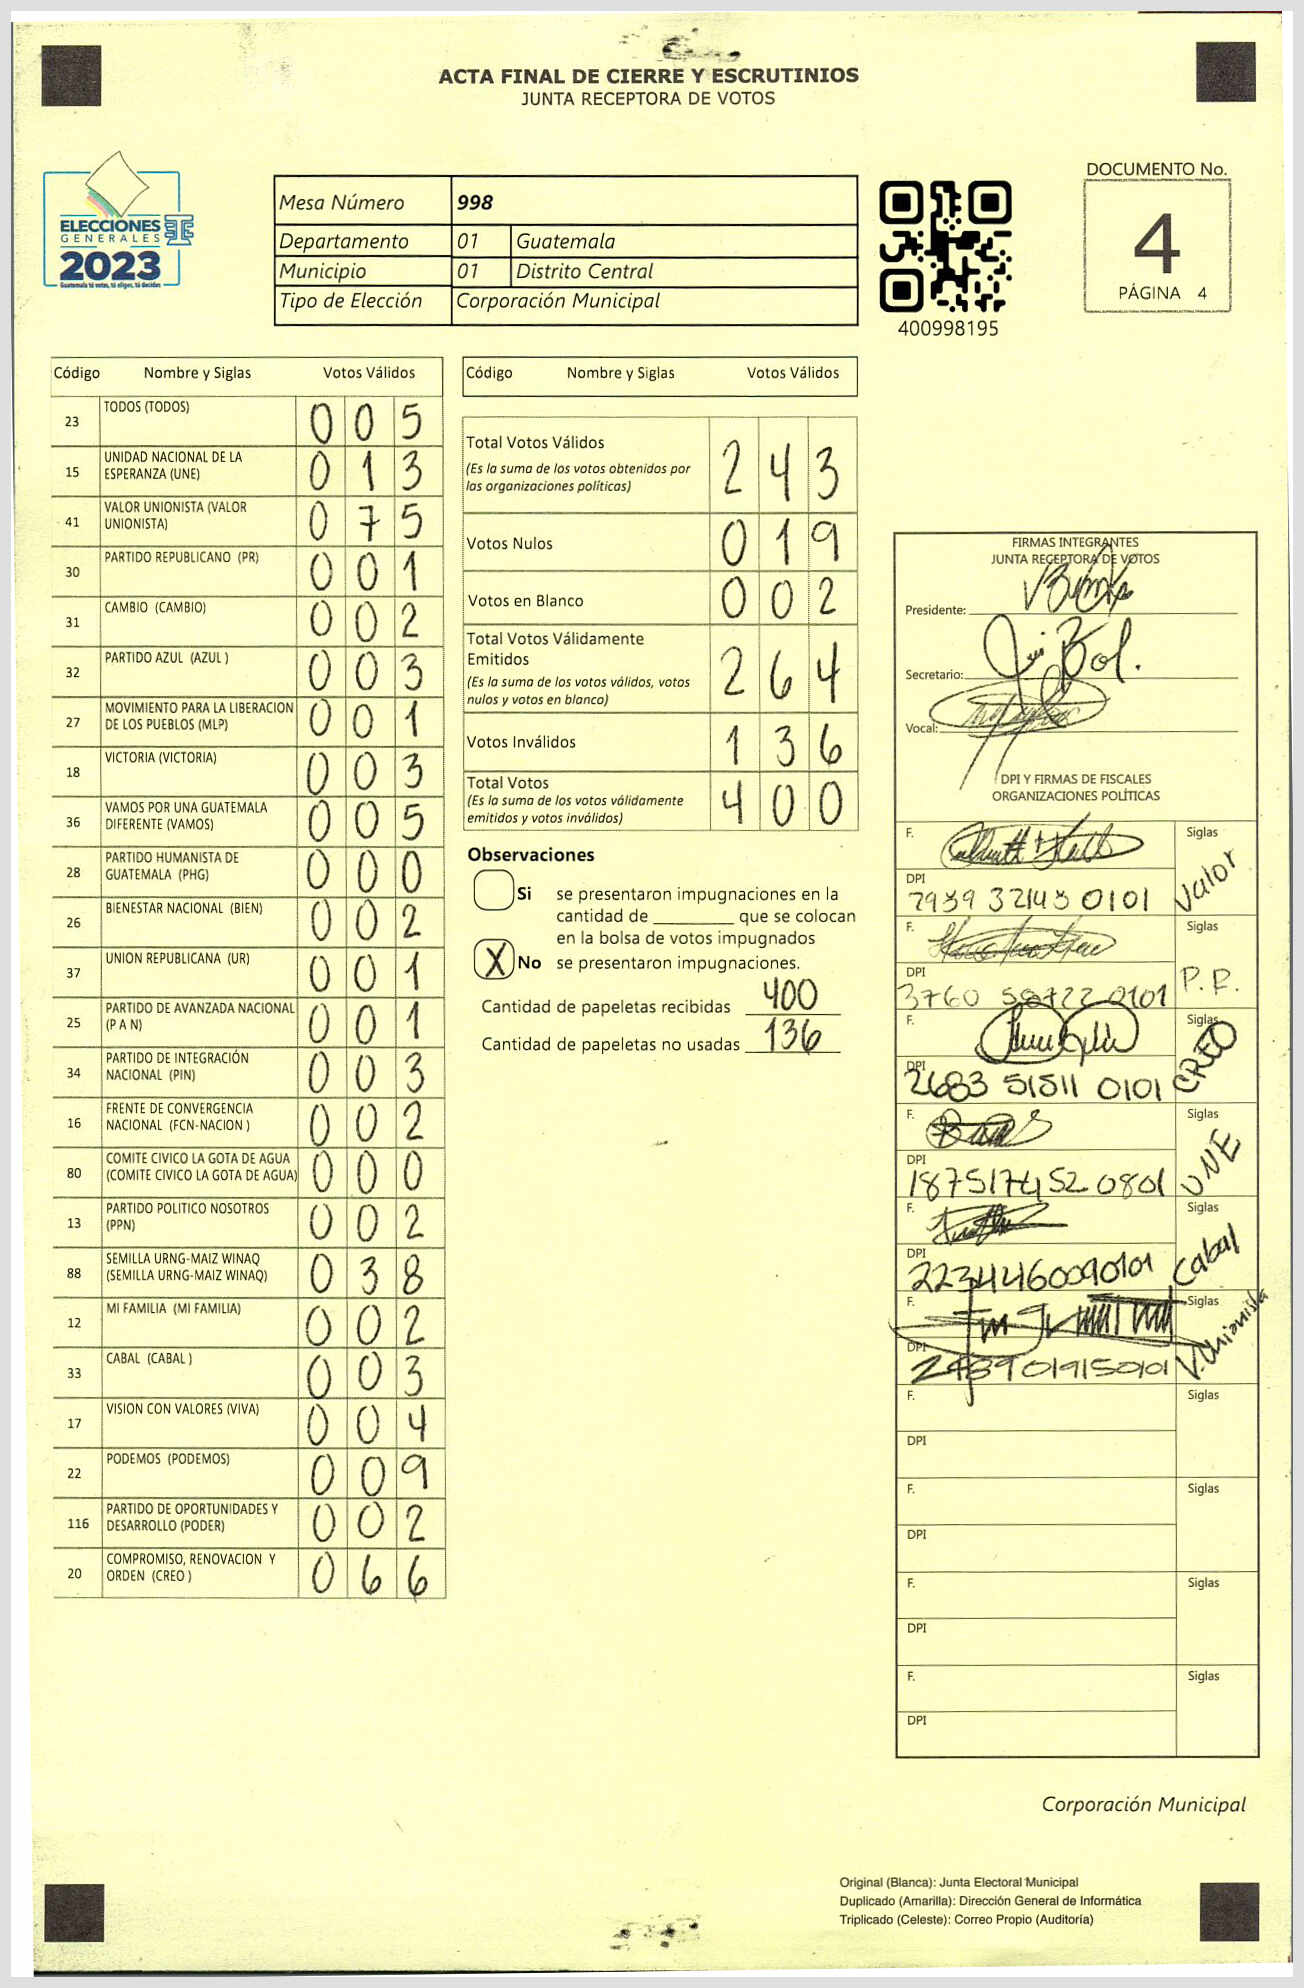 ACTA FINAL DE CIERRE Y ESCRUTINIOS
JUNTA RECEPTORA DE VOTOS
ELECCIONES
GENERALES
2023
Guatemala tú votas, tú eliges, tú decides
Mesa Número 998
Departamento 01 Guatemala
Municipio 01 Distrito Central
Tipo de Elección Corporación Municipal
400998195
DOCUMENTO No.
4
PÁGINA 4
Código Nombre y Siglas Votos Válidos
23 TODOS (TODOS) 0 0 5
15 UNIDAD NACIONAL DE LA
ESPERANZA (UNE) 0 1 3
41 VALOR UNIONISTA (VALOR
UNIONISTA) 0 7 5
30 PARTIDO REPUBLICANO (PR) 0 0 1
31 CAMBIO (CAMBIO) 0 0 2
32 PARTIDO AZUL (AZUL ) 0 0 3
27 MOVIMIENTO PARA LA LIBERACION
DE LOS PUEBLOS (MLP) 0 0 1
18 VICTORIA (VICTORIA) 0 0 3
36 VAMOS POR UNA GUATEMALA
DIFERENTE (VAMOS) 0 0 5
28 PARTIDO HUMANISTA DE
GUATEMALA (PHG) 0 0 0
26 BIENESTAR NACIONAL (BIEN) 0 0 2
37 UNION REPUBLICANA (UR) 0 0 1
25 PARTIDO DE AVANZADA NACIONAL
(P A N) 0 0 1
34 PARTIDO DE INTEGRACIÓN
NACIONAL (PIN) 0 0 3
16 FRENTE DE CONVERGENCIA
NACIONAL (FCN-NACION ) 0 0 2
80 COMITE CIVICO LA GOTA DE AGUA
(COMITE CIVICO LA GOTA DE AGUA) 0 0 0
13 PARTIDO POLITICO NOSOTROS
(PPN) 0 0 2
88 SEMILLA URNG-MAIZ WINAQ
(SEMILLA URNG-MAIZ WINAQ) 0 3 8
12 MI FAMILIA (MI FAMILIA) 0 0 2
33 CABAL (CABAL ) 0 0 3
17 VISION CON VALORES (VIVA) 0 0 4
22 PODEMOS (PODEMOS) 0 0 9
116 PARTIDO DE OPORTUNIDADES Y
DESARROLLO (PODER) 0 0 2
20 COMPROMISO, RENOVACION Y
ORDEN (CREO ) 0 6 6
Código Nombre y Siglas Votos Válidos
Total Votos Válidos 2 4 3
(Es la suma de los votos obtenidos por
las organizaciones políticas)
Votos Nulos 0 1 9
Votos en Blanco 0 0 2
Total Votos Válidamente
Emitidos 2 6 4
(Es la suma de los votos válidos, votos
nulos y votos en blanco)
Votos Inválidos 1 3 6
Total Votos 4 0 0
(Es la suma de los votos válidamente
emitidos y votos inválidos)
Observaciones
Si se presentaron impugnaciones en la
cantidad de ________ que se colocan
en la bolsa de votos impugnados
X No se presentaron impugnaciones.
Cantidad de papeletas recibidas 400
Cantidad de papeletas no usadas 136
FIRMAS INTEGRANTES
JUNTA RECEPTORA DE VOTOS
Presidente:
Secretario:
Vocal:
DPI Y FIRMAS DE FISCALES
ORGANIZACIONES POLÍTICAS
F. Siglas
DPI
7939 32143 0101 Valor
F. Siglas
DPI
3760 58722 0101 P.R.
F. Siglas
DPI
2683 51511 0101 CREO
F. Siglas
DPI
1875174520801 UNE
F. Siglas
DPI
2234446090101 Cabal
F. Siglas
DPI
2489019150101 V.Unionista
F. Siglas
DPI
F. Siglas
DPI
F. Siglas
DPI
F. Siglas
DPI
Corporación Municipal
Original (Blanca): Junta Electoral Municipal
Duplicado (Amarilla): Dirección General de Informática
Triplicado (Celeste): Correo Propio (Auditoría)